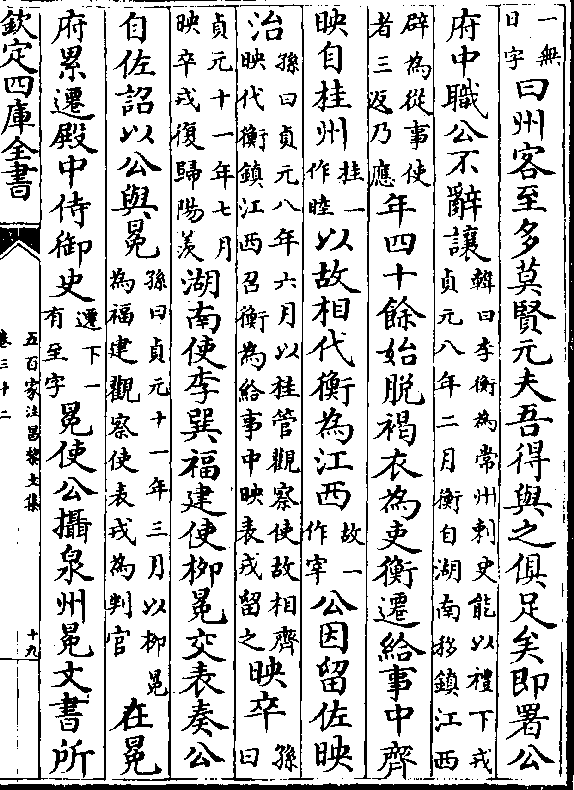 一無日字曰州客至多莫賢元夫吾得與之俱足矣即署公
府中職公不辭讓韓曰李衡為常州刺史能以禮下戎貞元八年二月衡自湖南移鎮江西
辟為從事使者三返乃應年四十餘始脫褐衣為吏衡遷給事中齊
映自桂州桂一作睦以故相代衡為江西故一作宰公因留佐映
治孫曰貞元八年六月以桂管觀察使故相齊映代衡鎮江西召衡為給事中映表戎留之映卒孫曰
貞元十一年七月映卒戎復歸陽羨湖南使李巽福建使柳冕交表奏公
自佐詔以公與冕孫曰貞元十一年三月以柳冕為福建觀察使表戎為判官在冕
府累遷殿中侍御史遷下一有至字冕使公攝泉州冕文書所
欽定四庫全書
五百家注昌黎文集
卷三十二
十九